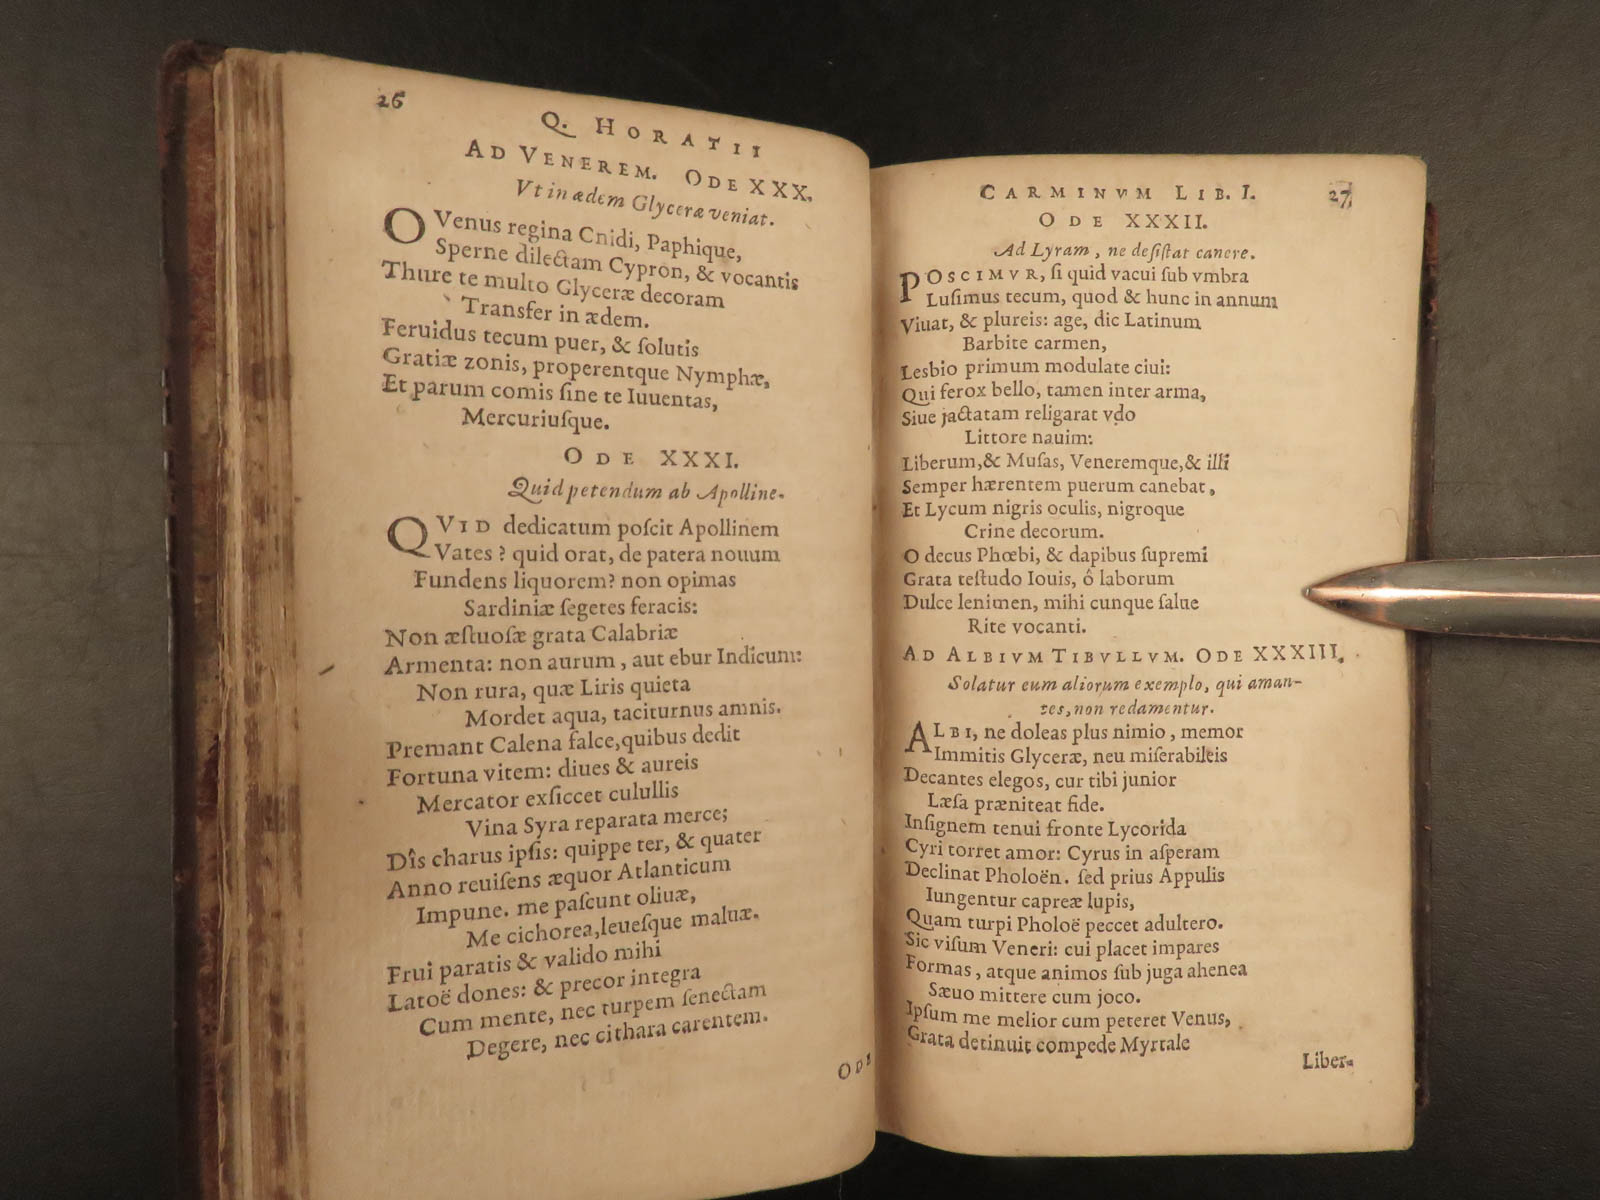 26
Q. HORATII
AD VENEREM. ODE XXX.
Vt in ædem Glyceræ veniat.
O Venus regina Cnidi, Paphique,
Sperne dilectam Cypron, & vocantis
Thure te multo Glyceræ decoram
Transfer in ædem.
Feruidus tecum puer, & ſolutis
Gratiæ zonis, properentque Nymphæ,
Et parum comis ſine te Iuuentas,
Mercuriuſque.
ODE XXXI.
Quid petendum ab Apolline.
QVID dedicatum poſcit Apollinem
Vates? quid orat, de patera nouum
Fundens liquorem? non opimas
Sardiniæ ſegetes feracis:
Non æſtuoſæ grata Calabriæ
Armenta: non aurum, aut ebur Indicum:
Non rura, quæ Liris quieta
Mordet aqua, taciturnus amnis.
Premant Calena falce, quibus dedit
Fortuna vitem: diues & aureis
Mercator exſiccet culullis
Vina Syra reparata merce;
Dîs charus ipſis: quippe ter, & quater
Anno reuiſens æquor Atlanticum
Impune. me paſcunt oliuæ,
Me cichorea, leueſque maluæ.
Frui paratis & valido mihi
Latoë dones: & precor integra
Cum mente, nec turpem ſenectam
Degere, nec cithara carentem.
ODE
CARMINVM LIB. I.
27
ODE XXXII.
Ad Lyram, ne deſiſtat canere.
POSCIMVR, ſi quid vacui ſub vmbra
Luſimus tecum, quod & hunc in annum
Viuat, & plureis: age, dic Latinum
Barbite carmen,
Lesbio primum modulate ciui:
Qui ferox bello, tamen inter arma,
Siue jactatam religarat vdo
Littore nauim:
Liberum, & Muſas, Veneremque, & illi
Semper hærentem puerum canebat,
Et Lycum nigris oculis, nigroque
Crine decorum.
O decus Phœbi, & dapibus ſupremi
Grata teſtudo Iouis, ô laborum
Dulce lenimen, mihi cunque ſalue
Rite vocanti.
AD ALBIVM TIBVLLVM. ODE XXXIII.
Solatur eum aliorum exemplo, qui aman-
tes, non redamentur.
ALBI, ne doleas plus nimio, memor
Immitis Glyceræ, neu miſerabileis
Decantes elegos, cur tibi junior
Læſa præniteat fide.
Inſignem tenui fronte Lycorida
Cyri torret amor: Cyrus in aſperam
Declinat Pholoën. ſed prius Appulis
Iungentur capreæ lupis,
Quam turpi Pholoë peccet adultero.
Sic viſum Veneri: cui placet impares
Formas, atque animos ſub juga ahenea
Sæuo mittere cum joco.
Ipſum me melior cum peteret Venus,
Grata detinuit compede Myrtale
Liber-